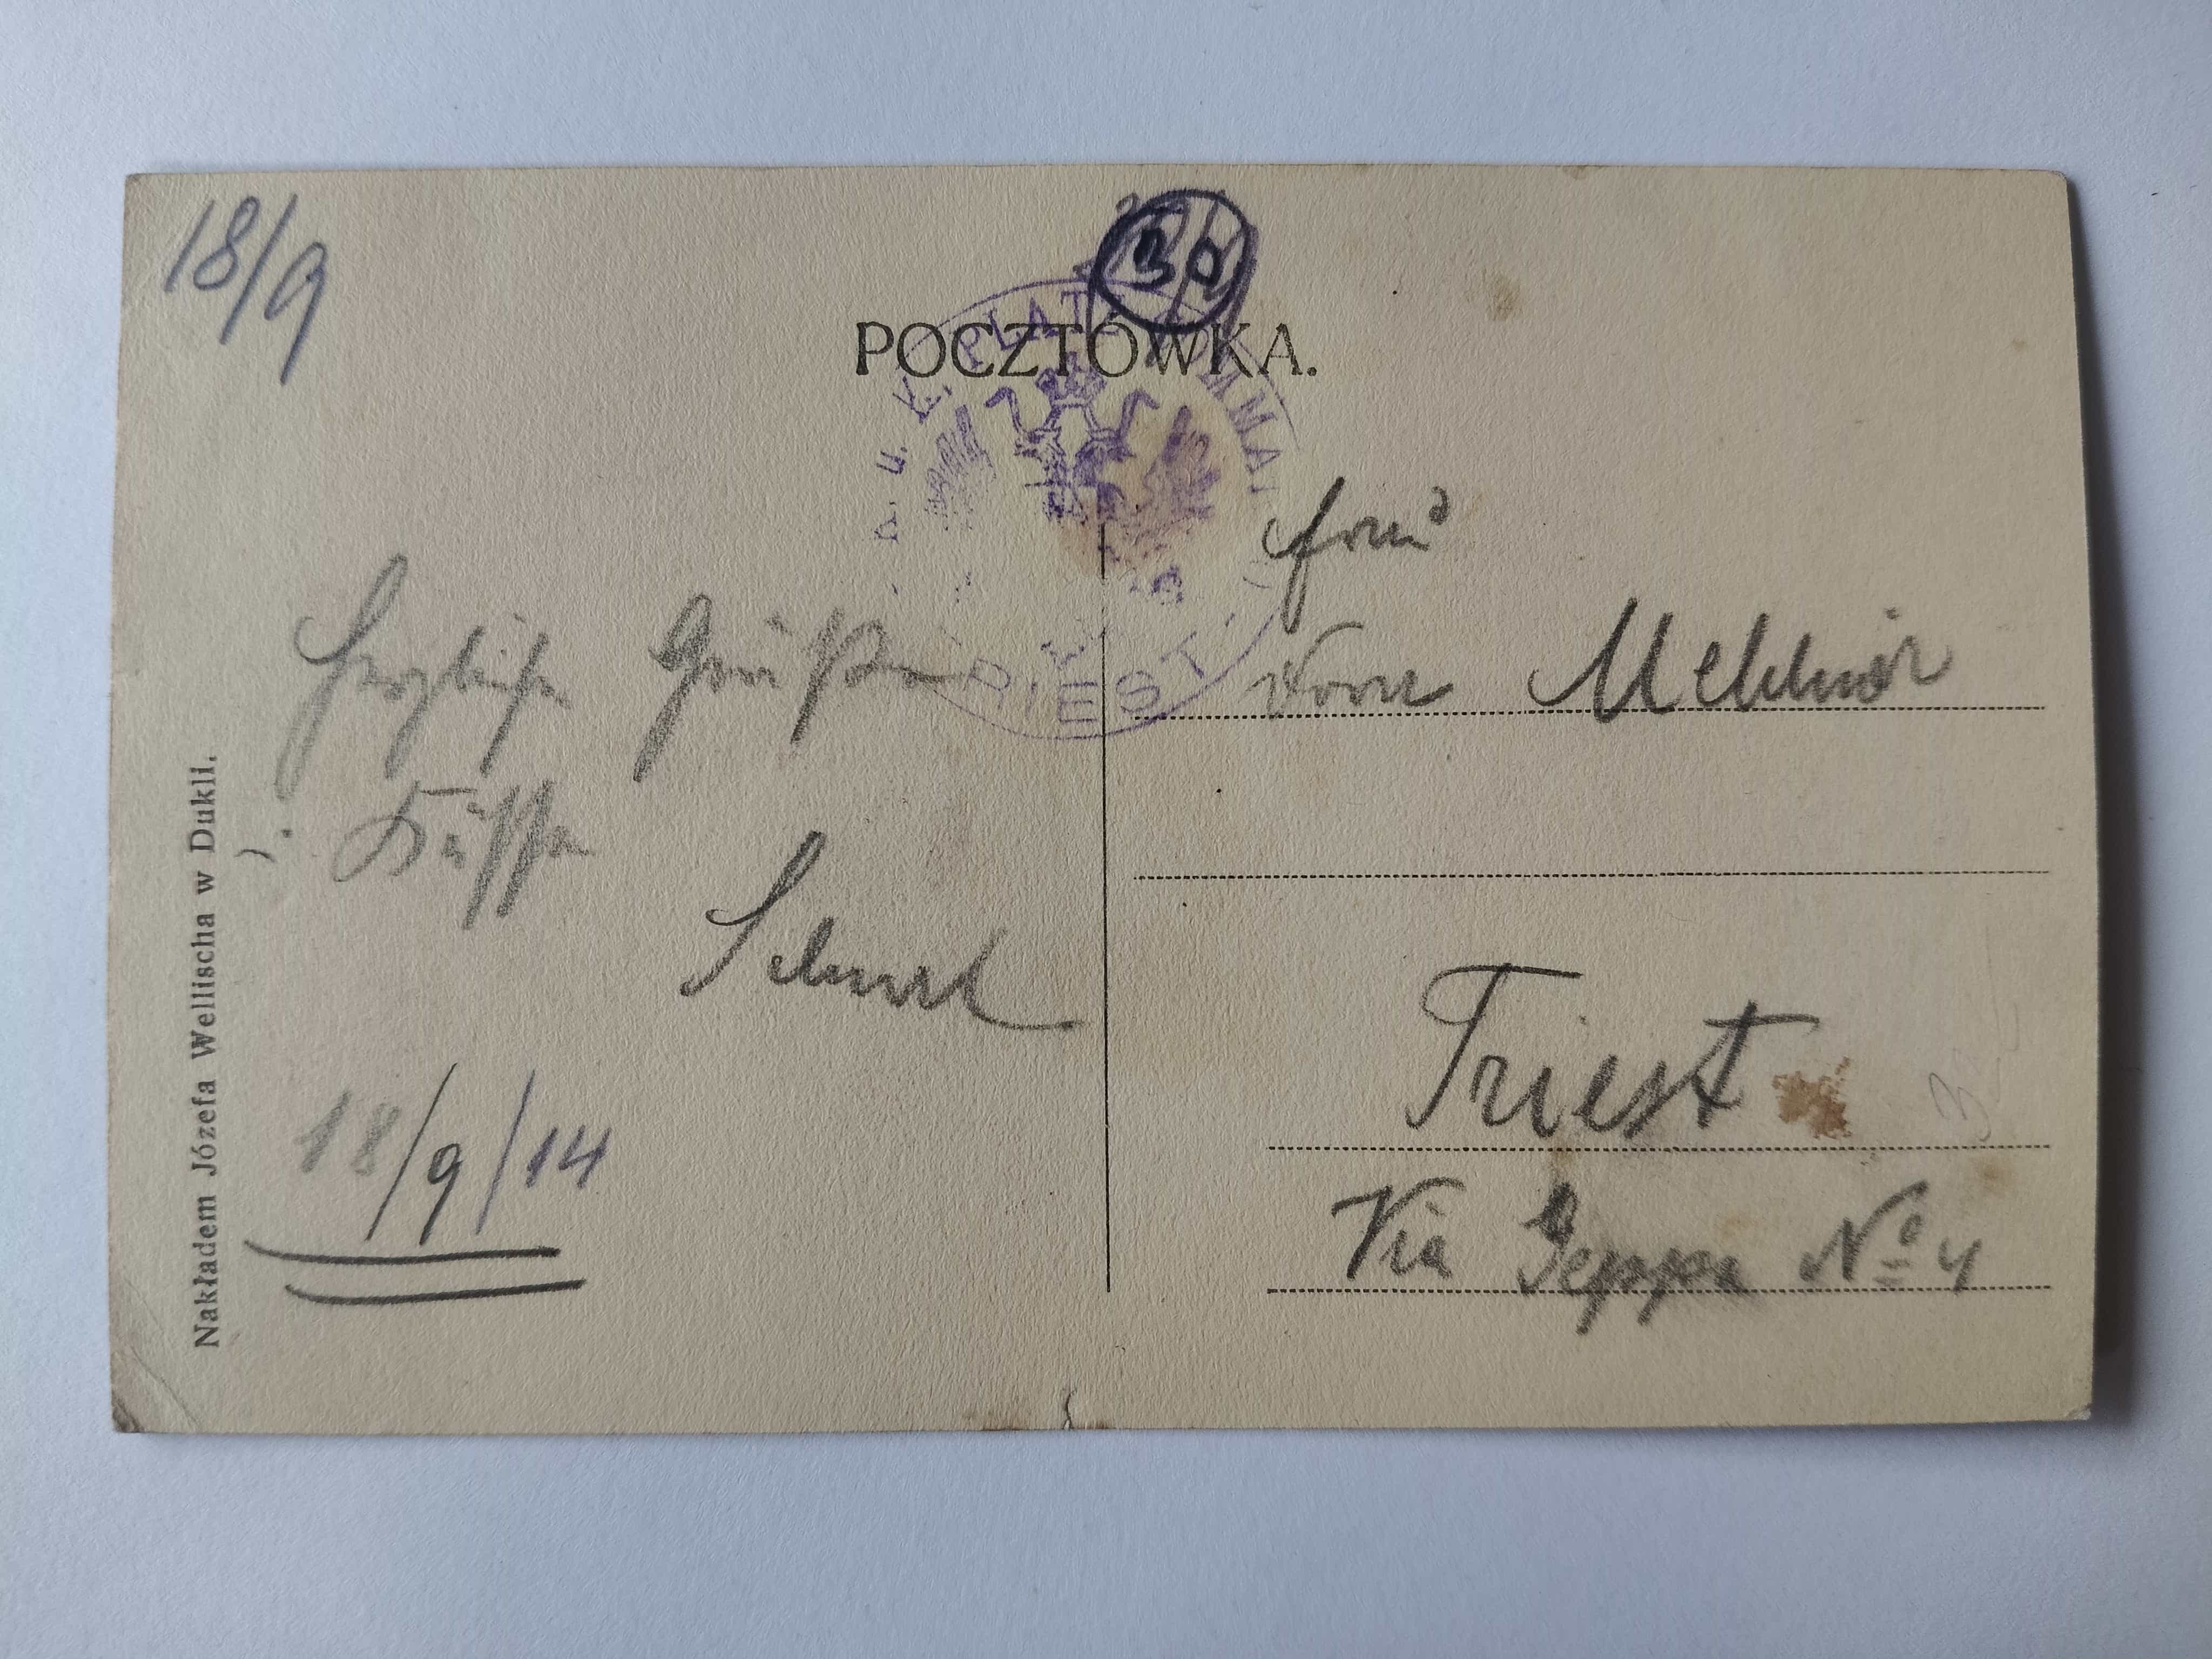 18/9
POCZTÓWKA.
K. u. K. PLATZ
TRIEST
Herzliche Grüße
Küsse
18/9/14
Frau
Triest
Via Geppa Nº 4
Nakładem Józefa Wellischa w Dukli.